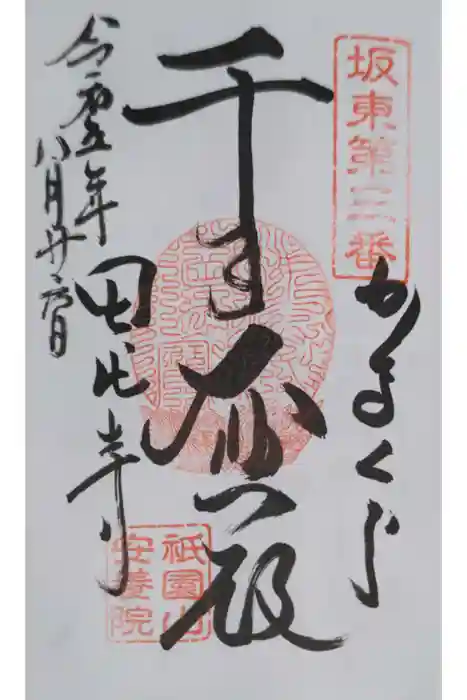 坂東第三番
かまくら
千手大悲殿
田代寺
令和五年八月廿六日
祇園山
安養院